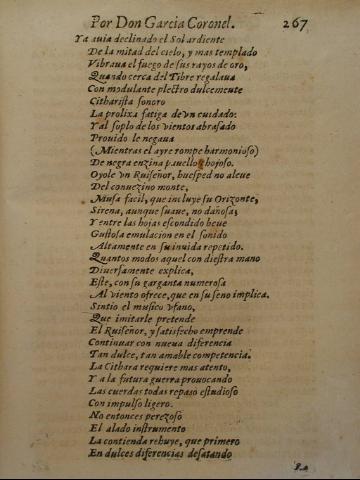 Por Don Garcia Coronel. 267
Ya auia declinado el Sol ardiente
De la mitad del cielo, y mas templado
Vibraua el fuego de sus rayos de oro,
Quando cerca del Tibre regalaua
Con modulante plectro dulcemente
Citharista sonoro
La prolixa fatiga de vn cuidado:
Y al soplo de los vientos abrasado
Prouido le negaua
(Mientras el ayre rompe harmonioso)
De negra enzina pauellō hojoso.
Oyole vn Ruiseñor, huesped no aleue
Del conuezino monte,
Musa facil, que incluye su Orizonte,
Sirena, aunque suaue, no dañosa;
Y entre las hojas escondido beue
Gustosa emulacion en el sonido
Altamente en su inuida repetido.
Quantos modos aquel con diestra mano
Diuersamente explica,
Este, con su garganta numerosa
Al viento ofrece, que en su seno implica.
Sintio el musico vfano,
Que imitarle pretende
El Ruiseñor, y satisfecho emprende
Continuar con nueua diferencia
Tan dulce, tan amable competencia.
La Cithara requiere mas atento,
Y a la futura guerra prouocando
Las cuerdas todas repaso estudioso
Con impulso ligero.
No entonces perezoso
El alado instrumento
La contienda rehuye, que primero
En dulces diferencias desatando